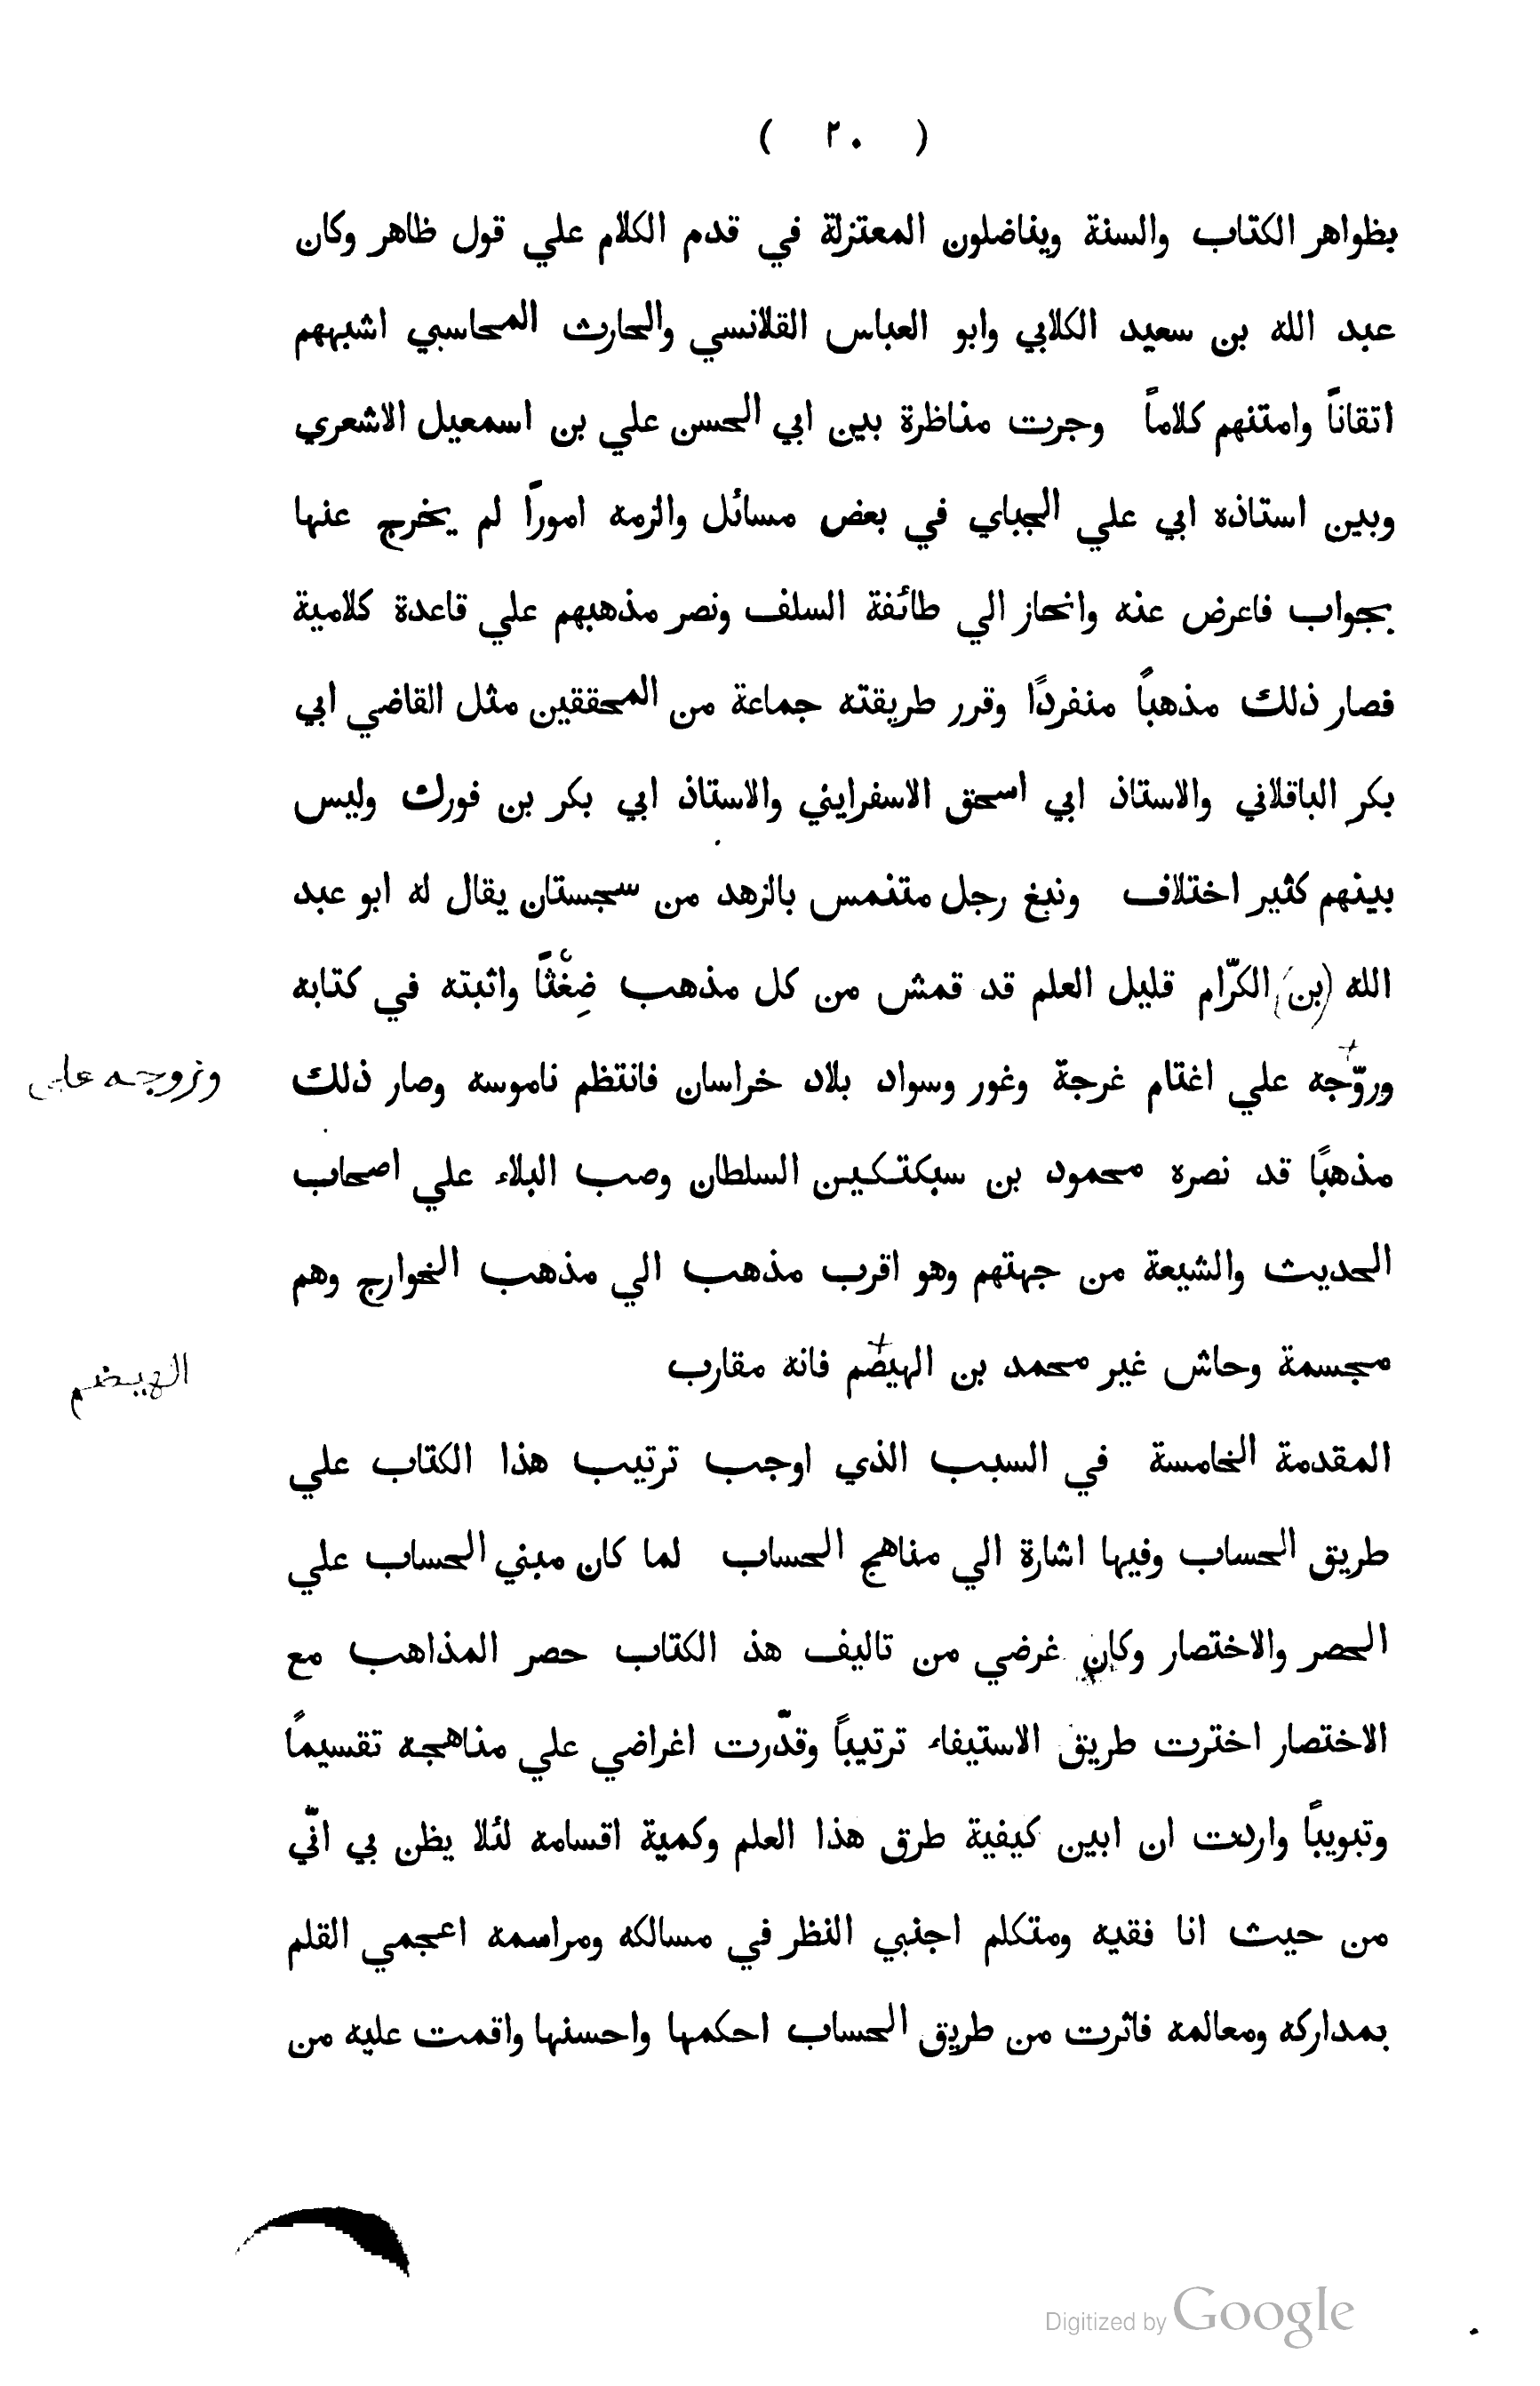 ( ٢٠ )
بظواهر الكتاب والسنة ويناضلون المعتزلة في قدم الكلام علي قول ظاهر وكان
عبد الله بن سعيد الكلابي وابو العباس القلانسي والحارث المحاسبي اشبههم
اتقاناً وامتنهم كلاماً وجرت مناظرة بين ابي الحسن علي بن اسمعيل الاشعري
وبين استاذه ابي علي الجباي في بعض مسائل والزمه اموراً لم يخرج عنها
بجواب فاعرض عنه وانحاز الي طائفة السلف ونصر مذهبهم علي قاعدة كلامية
فصار ذلك مذهباً منفردًا وقرر طريقته جماعة من المحققين مثل القاضي ابي
بكر الباقلاني والاستاذ ابي اسحق الاسفرايني والاستاذ ابي بكر بن فورك وليس
بينهم كثير اختلاف ونبغ رجل متنمس بالزهد من سجستان يقال له ابو عبد
الله (بن) الكرّام قليل العلم قد قمش من كل مذهب ضِغْثًا واثبته في كتابه
وروّجه علي اغتام غرجة وغور وسواد بلاد خراسان فانتظم ناموسه وصار ذلك
وتروجه علي
مذهبًا قد نصره محمود بن سبكتكين السلطان وصب البلاء علي اصحاب
الحديث والشيعة من جهتهم وهو اقرب مذهب الي مذهب الخوارج وهم
مجسمة وحاش غير محمد بن الهيصم فانه مقارب
الهيضم
المقدمة الخامسة في السبب الذي اوجب ترتيب هذا الكتاب علي
طريق الحساب وفيها اشارة الي مناهج الحساب لما كان مبني الحساب علي
الحصر والاختصار وكان غرضي من تاليف هذ الكتاب حصر المذاهب مع
الاختصار اخترت طريق الاستيفاء ترتيباً وقدّرت اغراضي علي مناهجه تقسيمًا
وتبويبًا واردت ان ابين كيفية طرق هذا العلم وكمية اقسامه لئلا يظن بي انّي
من حيث انا فقيه ومتكلم اجنبي النظر في مسالكه ومراسمه اعجمي القلم
بمداركه ومعالمه فاثرت من طريق الحساب احكمها واحسنها واقمت عليه من
Digitized by Google